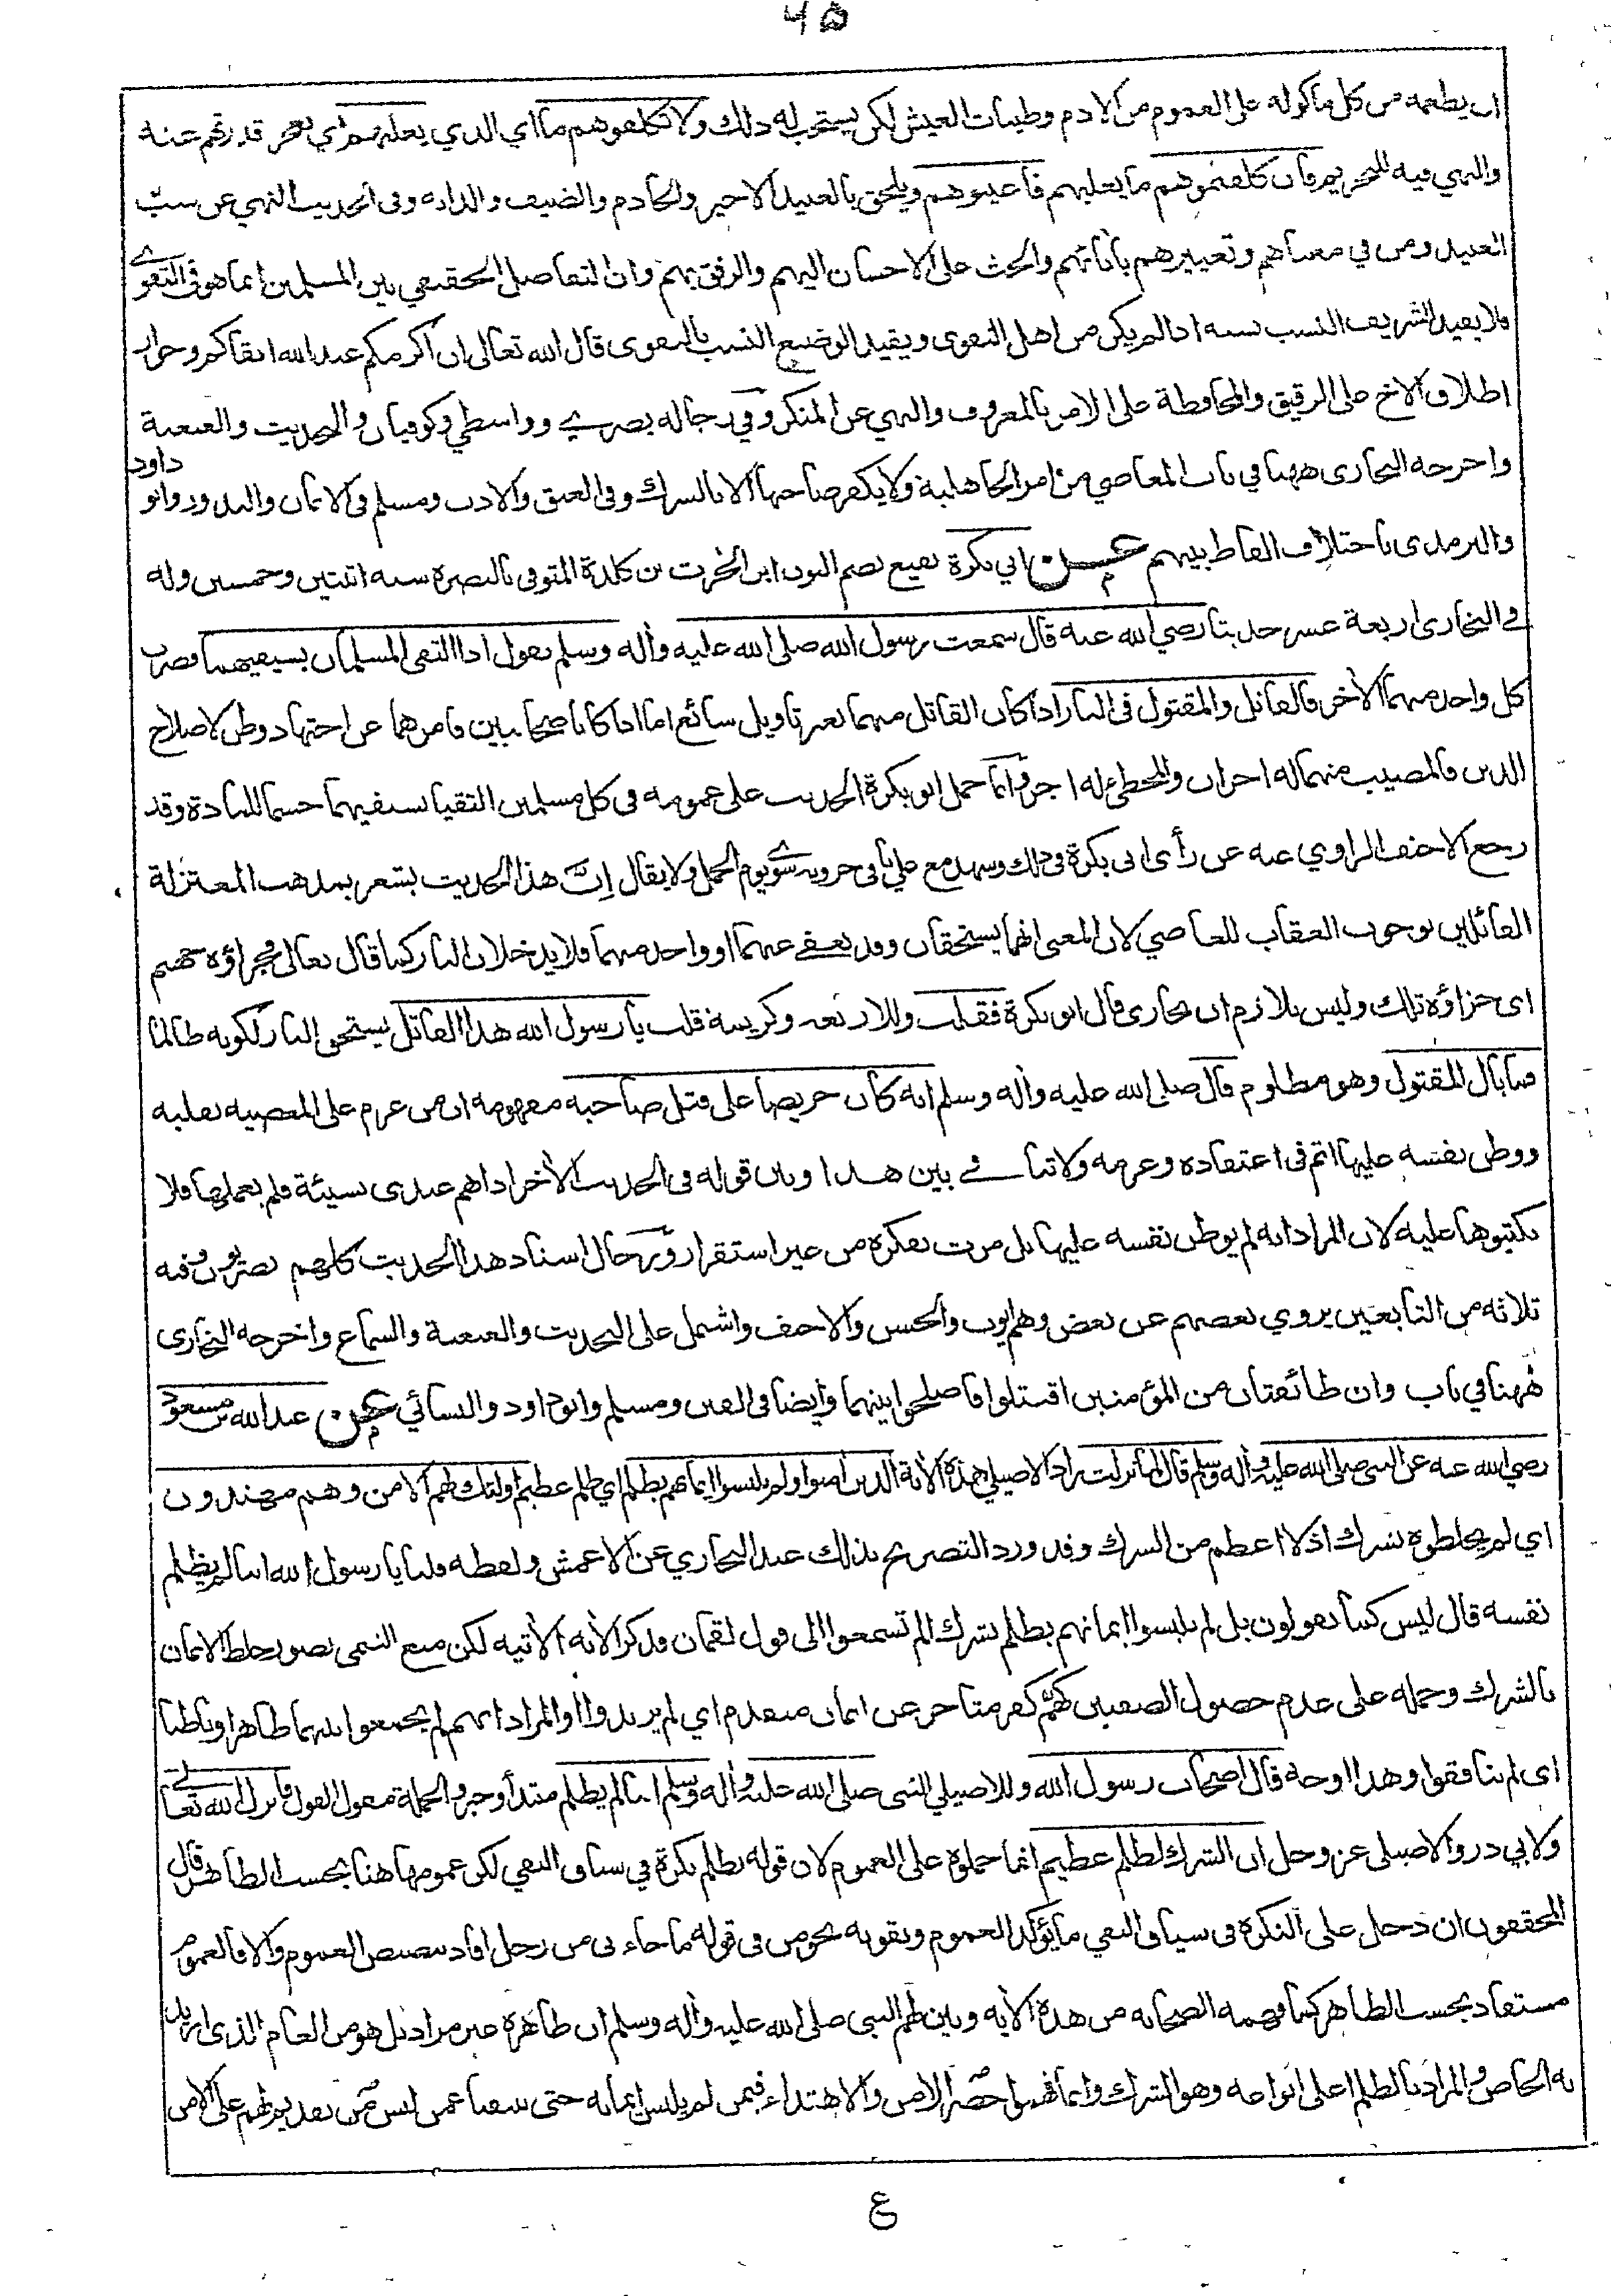 ٤٥
ان يطعمه من كل ماكوله على العموم من الادم وطيبات العيش لكن يستحب له ذلك ولا تكلفوهم ما اي الذي يغلبهم اي يعجز قدرتهم عنه
والنهي فيه للتحريم فان كلفتموهم ما يغلبهم فاعينوهم ويلحق بالعبيد الاجير والخادم والضيف والدابه وفى الحديث النهي عن سبّ
العبيد ومن في معناهم وتعييرهم بابائهم والحث على الاحسان اليهم والرفق بهم وان التفاضل الحقيقي بين المسلمين انما هو فى التقوى
فلا يفيد الشريف النسب نسبه اذا لم يكن من اهل التقوى ويفيد الوضيع النسب بالتقوى قال الله تعالى ان اكرمكم عند الله اتقاكم وجواز
اطلاق الاخ على الرقيق والمحافظة على الامر بالمعروف والنهي عن المنكر وفي رجاله بصري وواسطي وكوفيان والتحديث والعنعنة
واخرجه البخارى ههنا في باب المعاصي من امر الجاهلية ولا يكفر صاحبها الا بالشرك وفى العتق والادب ومسلم فى الايمان والنذور وابو داود
والترمذى باختلاف الفاظ بينهم عن ابي بكرة نفيع بضم النون ابن الحرث بن كلدة المتوفى بالبصرة سنه اثنتين وخمسين وله
في البخارى اربعة عشر حديثا رضي الله عنه قال سمعت رسول الله صلى الله عليه واله وسلم يقول اذا التقى المسلمان بسيفيهما فضرب
كل واحد منهما الآخر فالقاتل والمقتول فى النار اذا كان القاتل منهما بغير تاويل سائغ اما اذا كانا صحابيين فامرهما عن اجتهاد وظن لاصلاح
الدين فالمصيب منهما له اجران والمخطئ له اجر وانما حمل ابو بكرة الحديث على عمومه فى كل مسلمين التقيا بسيفيهما حسما للمادة وقد
رجع الاحنف الراوي عنه عن رأى ابى بكرة فى ذلك وشهد مع علي باقى حروبه سوى يوم الجمل ولا يقال إنّ هذا الحديث يشعر بمذهب المعتزلة
القائلين بوجوب العقاب للعاصي لان المعنى انهما يستحقان وقد يعفى عنهما او واحد منهما فلا يدخلان النار كما قال تعالى فجزاؤه جهنم
اى جزاؤه تلك وليس بلازم ان يجازى قال ابو بكرة فقلت وللاربعه وكريمة قلت يا رسول الله هذا القاتل يستحق النار لكونه ظالما
فما بال المقتول وهو مظلوم قال صلى الله عليه واله وسلم انه كان حريصا على قتل صاحبه مفهومه ان من عزم على المعصيه بقلبه
ووطن نفسه عليها اثم فى اعتقاده وعزمه ولا تنافي بين هذا وبين قوله فى الحديث الآخر اذا هم عبدى بسيئة فلم يعملها فلا
تكتبوها عليه لان المراد انه لم يوطن نفسه عليها بل مرت بفكره من غير استقرار ورجال اسناد هذا الحديث كلهم بصريون وفيه
ثلاثه من التابعين يروي بعضهم عن بعض وهم ايوب والحسن والاحنف واشتمل على التحديث والعنعنة والسماع واخرجه البخارى
ههنا في باب وان طائفتان من المؤمنين اقتتلوا فاصلحوا بينهما وايضا فى الفتن ومسلم وابو داود والنسائي عن عبد الله بن مسعود
رضي الله عنه عن النبى صلى الله عليه واله وسلم قال لما نزلت زاد الاصيلي هذه الآية الذين امنوا ولم يلبسوا ايمانهم بظلم اي ظلم عظيم اولئك لهم الامن وهم مهتدون
اي لم يخلطوه بشرك اذ لا اعظم من الشرك وقد ورد التصريح بذلك عند البخاري عن الاعمش ولفظه قلنا يا رسول الله اينا لم يظلم
نفسه قال ليس كما تقولون بل لم يلبسوا ايمانهم بظلم بشرك الم تسمعوا الى قول لقمان فذكر الآية الآتيه لكن منع التيمى تصور خلط الايمان
بالشرك وحمله على عدم حصول الصفتين لهم كفر متاخر عن ايمان متقدم اي لم يرتدوا او المراد انهم لم يجمعوا بينهما ظاهرا وباطنا
اى لم ينافقوا وهذا اوجه قال اصحاب رسول الله وللاصيلي النبى صلى الله عليه واله وسلم اينا لم يظلم مبتدأ وخبر والجملة مقول القول فانزل الله تعالى
ولابي ذر والاصيلى عز وجل ان الشرك لظلم عظيم انما حملوه على العموم لان قوله بظلم نكرة في سياق النفي لكن عمومها هنا بحسب الظاهر قال
المحققون ان دخل على النكرة فى سياق النفي ما يؤكد العموم ويقويه نحو من فى قوله ما جاءنى من رجل افاد تنصيص العموم والا فالعموم
مستفاد بحسب الظاهر كما فهمه الصحابه من هذه الآيه وبين لهم النبى صلى الله عليه واله وسلم ان ظاهره غير مراد بل هو من العام الذى اريد
به الخاص والمراد بالظلم اعلى انواعه وهو الشرك وانما فهموا حصر الامن والاهتداء فيمن لم يلبس ايمانه حتى ينتفيا عمن لبس من تقديم لهم على الامن
ع